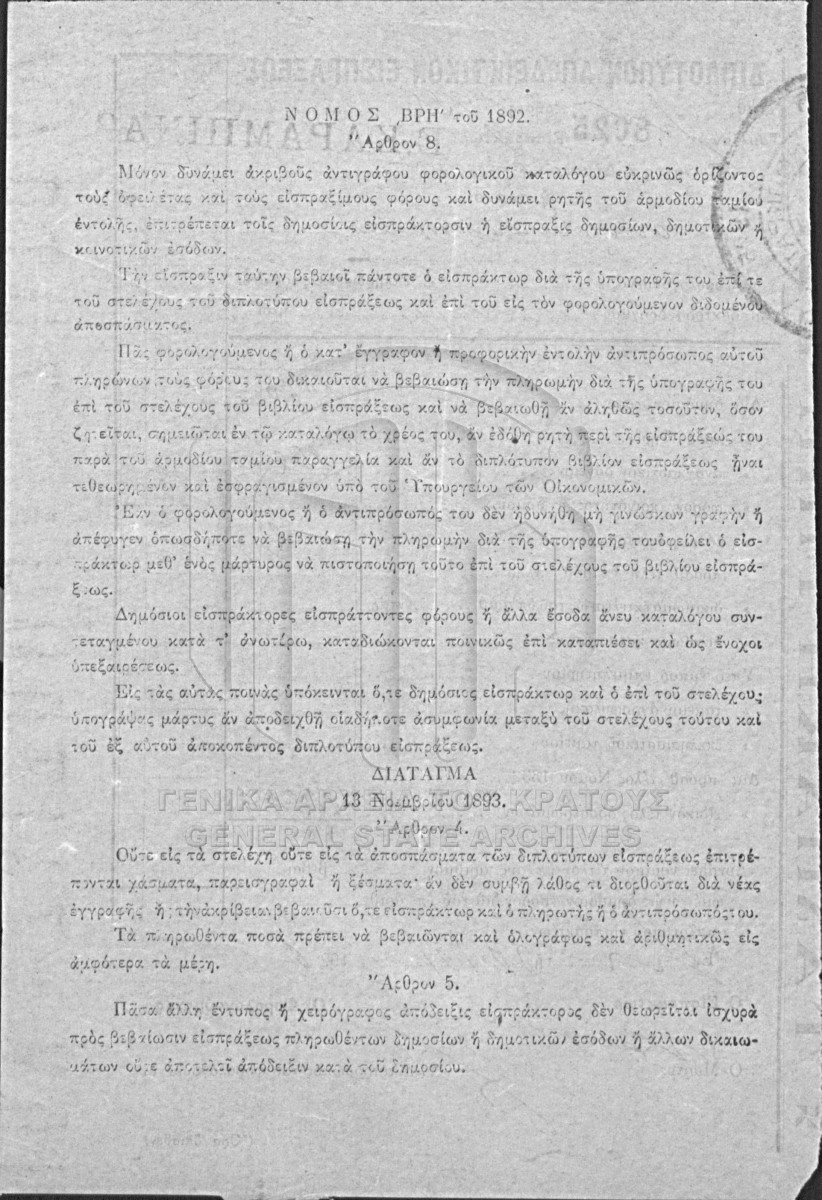 ΝΟΜΟΣ ΒΡΗ' τοῦ 1892.
Ἄρθρον 8.
Μόνον δυνάμει ἀκριβοῦς ἀντιγράφου φορολογικοῦ καταλόγου εὐκρινῶς ὁρίζοντος
τοὺς ὀφειλέτας καὶ τοὺς εἰσπραξίμους φόρους καὶ δυνάμει ρητῆς τοῦ ἁρμοδίου ταμίου
ἐντολῆς, ἐπιτρέπεται τοῖς δημοσίοις εἰσπράκτορσιν ἡ εἴσπραξις δημοσίων, δημοτικῶν ἢ
κοινοτικῶν ἐσόδων.
Τὴν εἴσπραξιν ταύτην βεβαιοῖ πάντοτε ὁ εἰσπράκτωρ διὰ τῆς ὑπογραφῆς του ἐπί τε
τοῦ στελέχους τοῦ διπλοτύπου εἰσπράξεως καὶ ἐπὶ τοῦ εἰς τὸν φορολογούμενον διδομένου
ἀποσπάσματος.
Πᾶς φορολογούμενος ἢ ὁ κατ' ἔγγραφον ἢ προφορικὴν ἐντολὴν ἀντιπρόσωπος αὐτοῦ
πληρώνων τοὺς φόρους του δικαιοῦται νὰ βεβαιώσῃ τὴν πληρωμὴν διὰ τῆς ὑπογραφῆς του
ἐπὶ τοῦ στελέχους τοῦ βιβλίου εἰσπράξεως καὶ νὰ βεβαιωθῇ ἂν ἀληθῶς τοσοῦτον, ὅσον
ζητεῖται, σημειῶται ἐν τῷ καταλόγῳ τὸ χρέος του, ἂν ἐδόθη ρητὴ περὶ τῆς εἰσπράξεώς του
παρὰ τοῦ ἁρμοδίου ταμίου παραγγελία καὶ ἂν τὸ διπλότυπον βιβλίον εἰσπράξεως ᾖναι
τεθεωρημένον καὶ ἐσφραγισμένον ὑπὸ τοῦ Ὑπουργείου τῶν Οἰκονομικῶν.
Ἐὰν ὁ φορολογούμενος ἢ ὁ ἀντιπρόσωπός του δὲν ἠδυνήθη μὴ γινώσκων γραφὴν ἢ
ἀπέφυγεν ὁπωσδήποτε νὰ βεβαιώσῃ τὴν πληρωμὴν διὰ τῆς ὑπογραφῆς τουὀφείλει ὁ εἰσ-
πράκτωρ μεθ' ἑνὸς μάρτυρος νὰ πιστοποιήσῃ τοῦτο ἐπὶ τοῦ στελέχους τοῦ βιβλίου εἰσπρά-
ξεως.
Δημόσιοι εἰσπράκτορες εἰσπράττοντες φόρους ἢ ἄλλα ἔσοδα ἄνευ καταλόγου συν-
τεταγμένου κατὰ τ' ἀνωτέρω, καταδιώκονται ποινικῶς ἐπὶ καταπιέσει καὶ ὡς ἔνοχοι
ὑπεξαιρέσεως.
Εἰς τὰς αὐτὰς ποινὰς ὑπόκεινται ὅ,τε δημόσιος εἰσπράκτωρ καὶ ὁ ἐπὶ τοῦ στελέχους
ὑπογράψας μάρτυς ἂν ἀποδειχθῇ οἱαδήποτε ἀσυμφωνία μεταξὺ τοῦ στελέχους τούτου καὶ
τοῦ ἐξ αὐτοῦ ἀποκοπέντος διπλοτύπου εἰσπράξεως.
ΔΙΑΤΑΓΜΑ
13 Νοεμβρίου 1893.
ΓΕΝΙΚΑ ΑΡΧΕΙΑ ΤΟΥ ΚΡΑΤΟΥΣ
GENERAL STATE ARCHIVES
Ἄρθρον 4.
Οὔτε εἰς τὰ στελέχη οὔτε εἰς τὰ ἀποσπάσματα τῶν διπλοτύπων εἰσπράξεως ἐπιτρέ-
πονται χάσματα, παρεισγραφαὶ ἢ ξέσματα· ἂν δὲν συμβῇ λάθος τι διορθοῦται διὰ νέας
ἐγγραφῆς ἧς τὴνἀκρίβειαν βεβαιοῦσι ὅ,τε εἰσπράκτωρ καὶ ὁ πληρωτὴς ἢ ὁ ἀντιπρόσωπός του.
Τὰ πληρωθέντα ποσὰ πρέπει νὰ βεβαιῶνται καὶ ὁλογράφως καὶ ἀριθμητικῶς εἰς
ἀμφότερα τὰ μέρη.
Ἄρθρον 5.
Πᾶσα ἄλλη ἔντυπος ἢ χειρόγραφος ἀπόδειξις εἰσπράκτορος δὲν θεωρεῖται ἰσχυρὰ
πρὸς βεβαίωσιν εἰσπράξεως πληρωθέντων δημοσίων ἢ δημοτικῶν ἐσόδων ἢ ἄλλων δικαιω-
μάτων οὔτε ἀποτελεῖ ἀπόδειξιν κατὰ τοῦ δημοσίου.